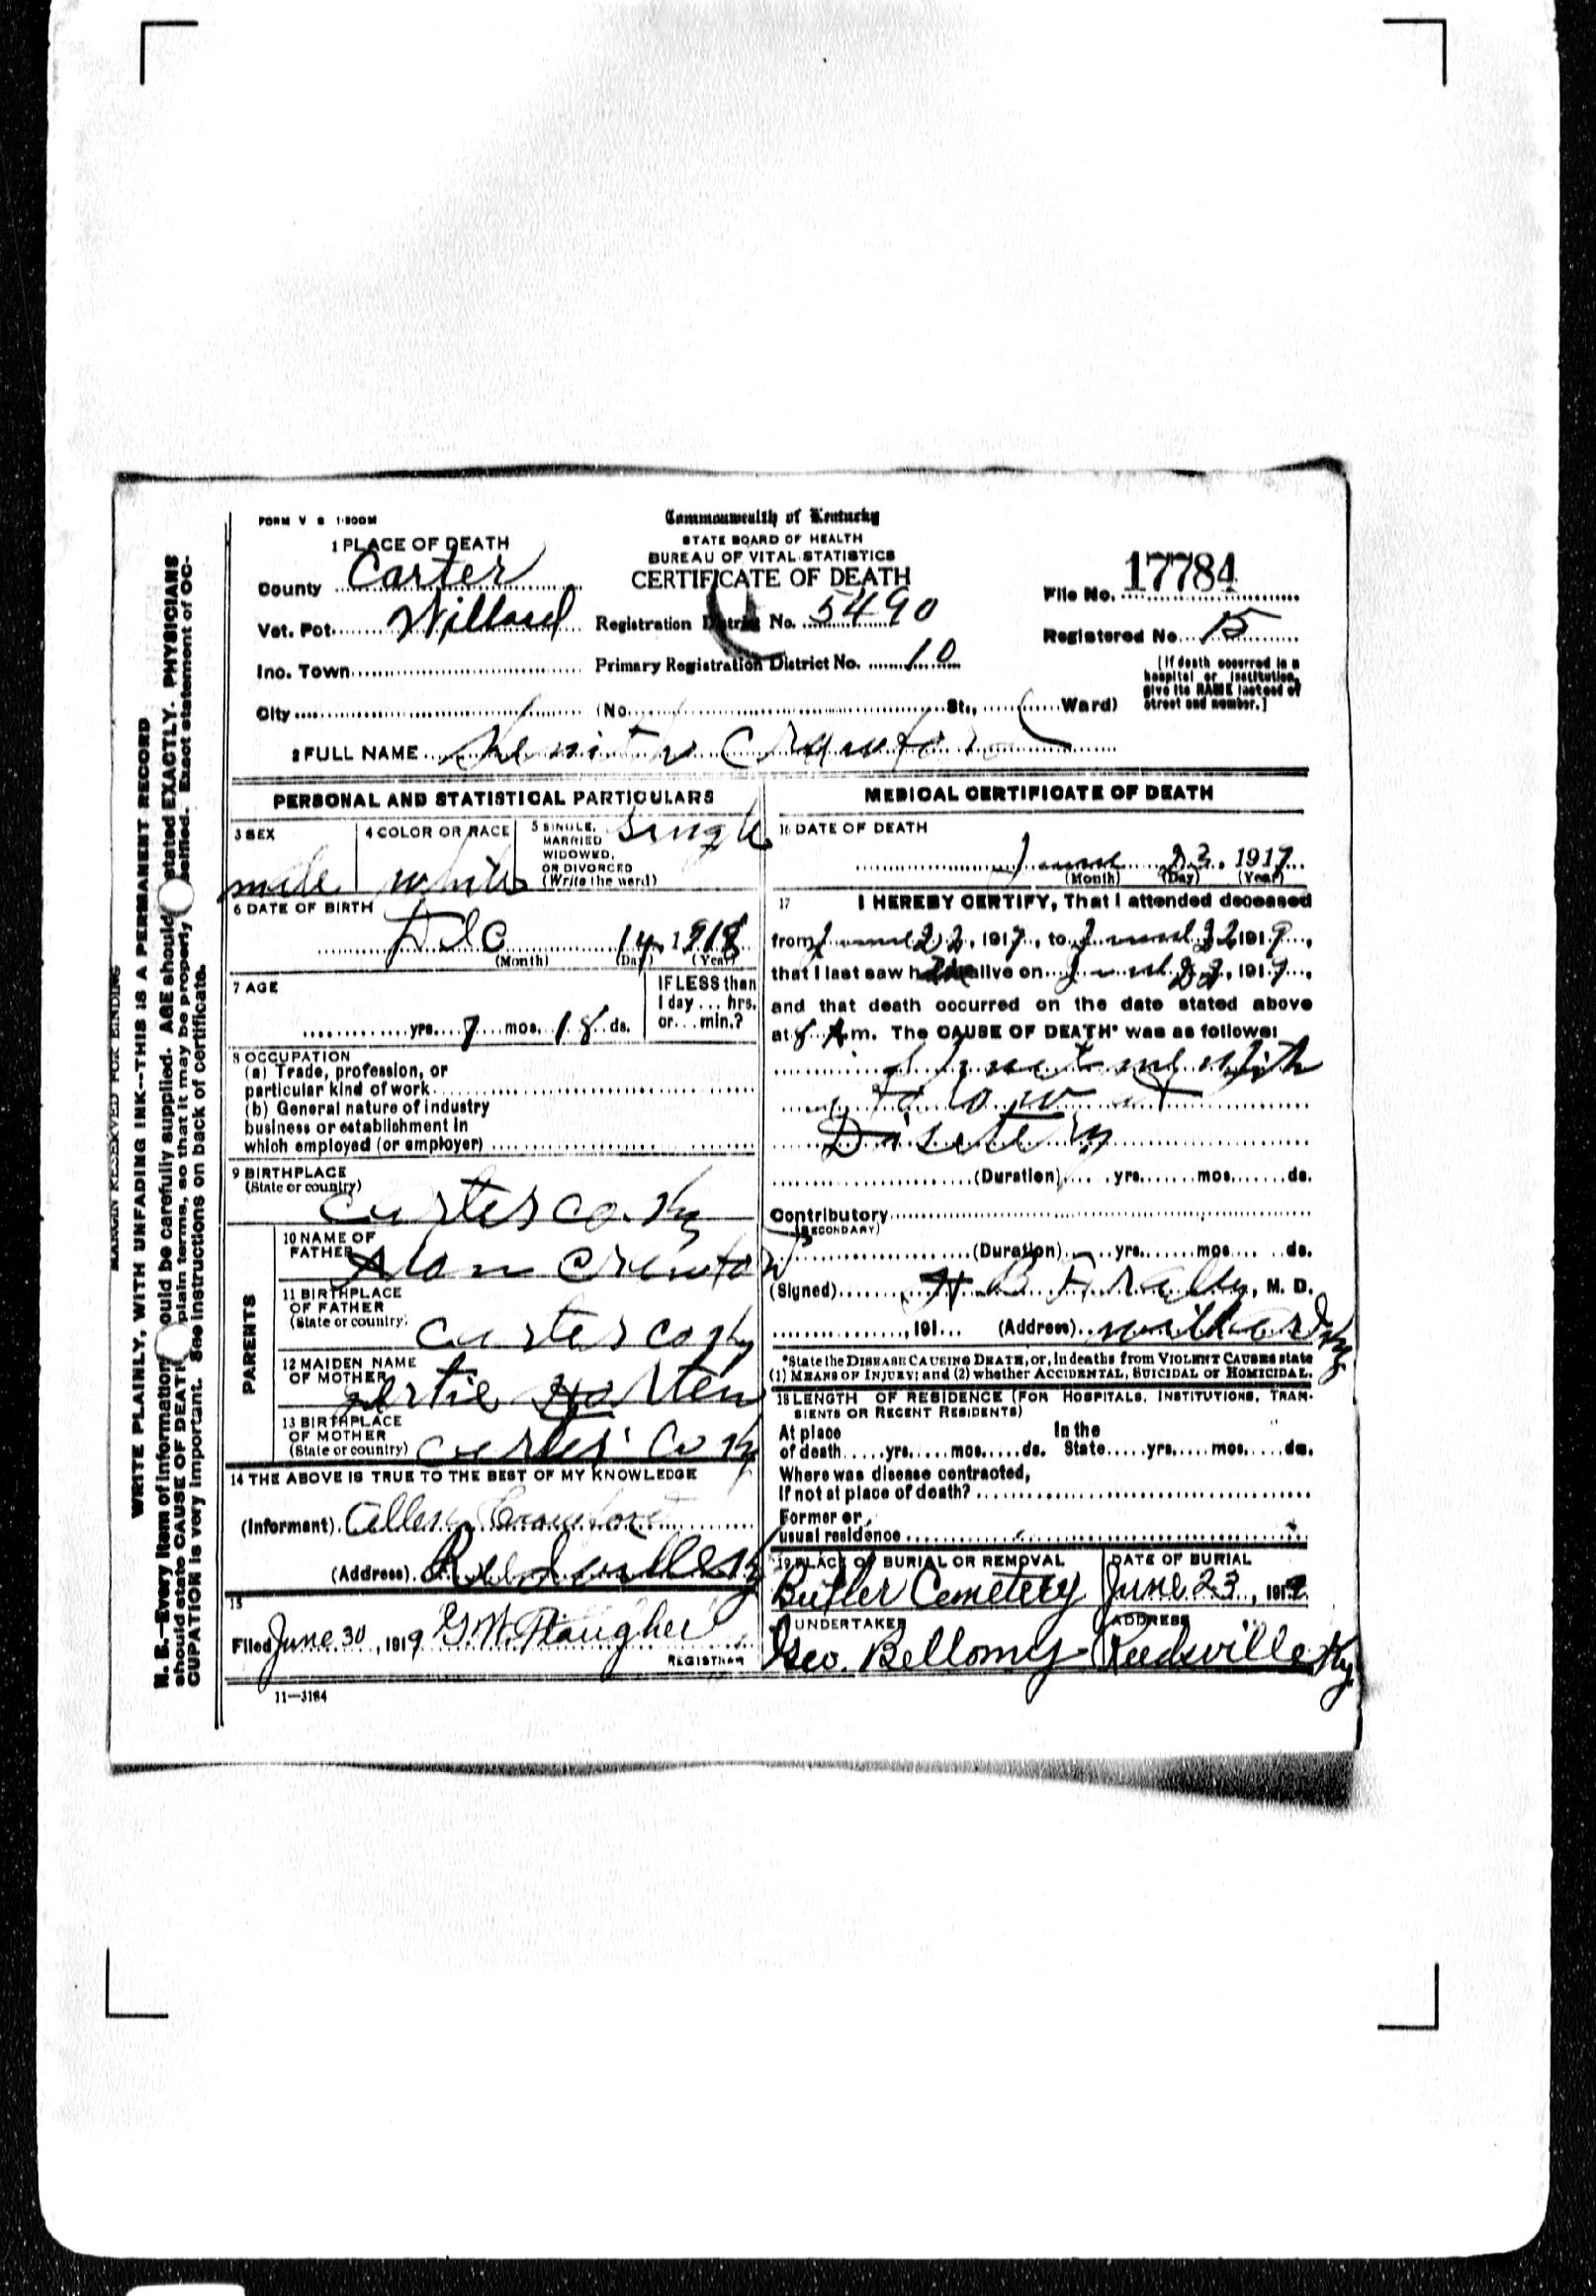 FORM V S 1-500M
Commonwealth of Kentucky
STATE BOARD OF HEALTH
BUREAU OF VITAL STATISTICS
CERTIFICATE OF DEATH
1 PLACE OF DEATH
County Carter
Vot. Pct. Willard
Inc. Town
City (No. St., Ward)
Registration District No. 5490
Primary Registration District No. 10
File No. 17784
Registered No. 15
[If death occurred in a
hospital or institution,
give its NAME instead of
street and number.]
2 FULL NAME Crawford
PERSONAL AND STATISTICAL PARTICULARS
3 SEX
male
4 COLOR OR RACE
white
5 SINGLE,
MARRIED
WIDOWED,
OR DIVORCED
(Write the word)
single
6 DATE OF BIRTH
Dec 14, 1918
(Month) (Day) (Year)
7 AGE
yrs. mos. 18 ds.
IF LESS than
1 day... hrs.
or... min.?
8 OCCUPATION
(a) Trade, profession, or
particular kind of work
(b) General nature of industry
business or establishment in
which employed (or employer)
9 BIRTHPLACE
(State or country)
Carter co. Ky
PARENTS
10 NAME OF
FATHER
11 BIRTHPLACE
OF FATHER
(State or country)
Carter co Ky
12 MAIDEN NAME
OF MOTHER
13 BIRTHPLACE
OF MOTHER
(State or country)
Carter Co Ky
14 THE ABOVE IS TRUE TO THE BEST OF MY KNOWLEDGE
(Informant) Allen Crawford
(Address)
15
Filed June 30, 1919 G.W. Plaugher
REGISTRAR
11—3184
MEDICAL CERTIFICATE OF DEATH
16 DATE OF DEATH
June 23, 1919
(Month) (Day) (Year)
17 I HEREBY CERTIFY, That I attended deceased
from 22, 1919, to 22 1919,
that I last saw h alive on 22, 1919,
and that death occurred on the date stated above
at 8 A m. The CAUSE OF DEATH* was as follows:
(Duration) yrs. mos. ds.
Contributory
(SECONDARY)
(Duration) yrs. mos. ds.
(Signed) M. D.
, 191 (Address) Willard Ky
*State the DISEASE CAUSING DEATH, or, in deaths from VIOLENT CAUSES state
(1) MEANS OF INJURY; and (2) whether ACCIDENTAL, SUICIDAL or HOMICIDAL.
18 LENGTH OF RESIDENCE (FOR HOSPITALS, INSTITUTIONS, TRAN-
SIENTS OR RECENT RESIDENTS)
At place
of death yrs. mos. ds.
In the
State yrs. mos. ds.
Where was disease contracted,
if not at place of death?
Former or
usual residence
19 PLACE OF BURIAL OR REMOVAL
Butler Cemetery
DATE OF BURIAL
June 23, 1919
UNDERTAKER
Geo. Bellomy
ADDRESS
Reedsville Ky
MARGIN RESERVED FOR BINDING
WRITE PLAINLY, WITH UNFADING INK--THIS IS A PERMANENT RECORD
N. B.—Every item of information should be carefully supplied. AGE should stated EXACTLY. PHYSICIANS
should state CAUSE OF DEATH plain terms, so that it may be properly Exact statement of OC-
CUPATION is very important. See instructions on back of certificate.